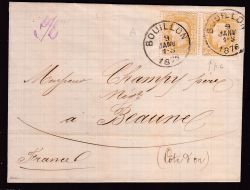 BOUILLON
9
JANV
1-S
1876
BOUILLON
9
JANV
1-S
1876
Monsieur Champy père
à Beaune
(Côte d'or)
France